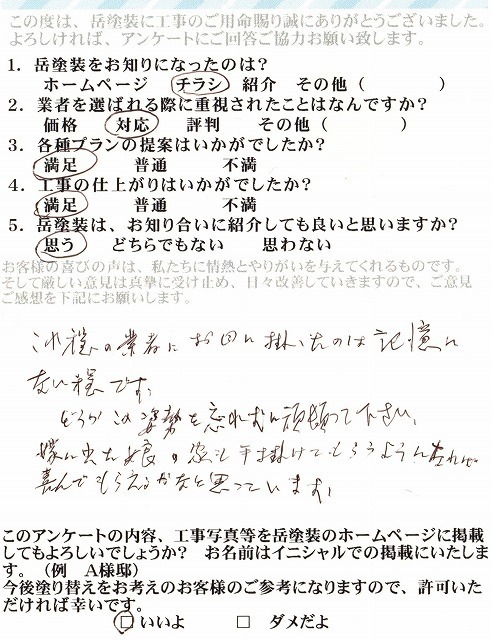 この度は、岳塗装に工事のご用命賜り誠にありがとうございました。
よろしければ、アンケートにご回答ご協力お願い致します。
1．岳塗装をお知りになったのは？
ホームページ　チラシ　紹介　その他（　　　　）
2．業者を選ばれる際に重視されたことはなんですか？
価格　対応　評判　その他（　　　　）
3．各種プランの提案はいかがでしたか？
満足　普通　不満
4．工事の仕上がりはいかがでしたか？
満足　普通　不満
5．岳塗装は、お知り合いに紹介しても良いと思いますか？
思う　どちらでもない　思わない
お客様の喜びの声は、私たちに情熱とやりがいを与えてくれるものです。
そして厳しい意見は真摯に受け止め、日々改善していきますので、ご意見
ご感想を下記にお願いします。
この様の業者にお目に掛ったのは記憶に
ない程です。
どうかこの姿勢を忘れずに頑張って下さい。
嫁に出た娘の家も手掛けてもらうようになれば
喜んでもらえるかなと思っています。
このアンケートの内容、工事写真等を岳塗装のホームページに掲載
してもよろしいでしょうか？　お名前はイニシャルでの掲載にいたしま
す。（例　A様邸）
今後塗り替えをお考えのお客様のご参考になりますので、許可いた
だければ幸いです。
□ いいよ　□ ダメだよ